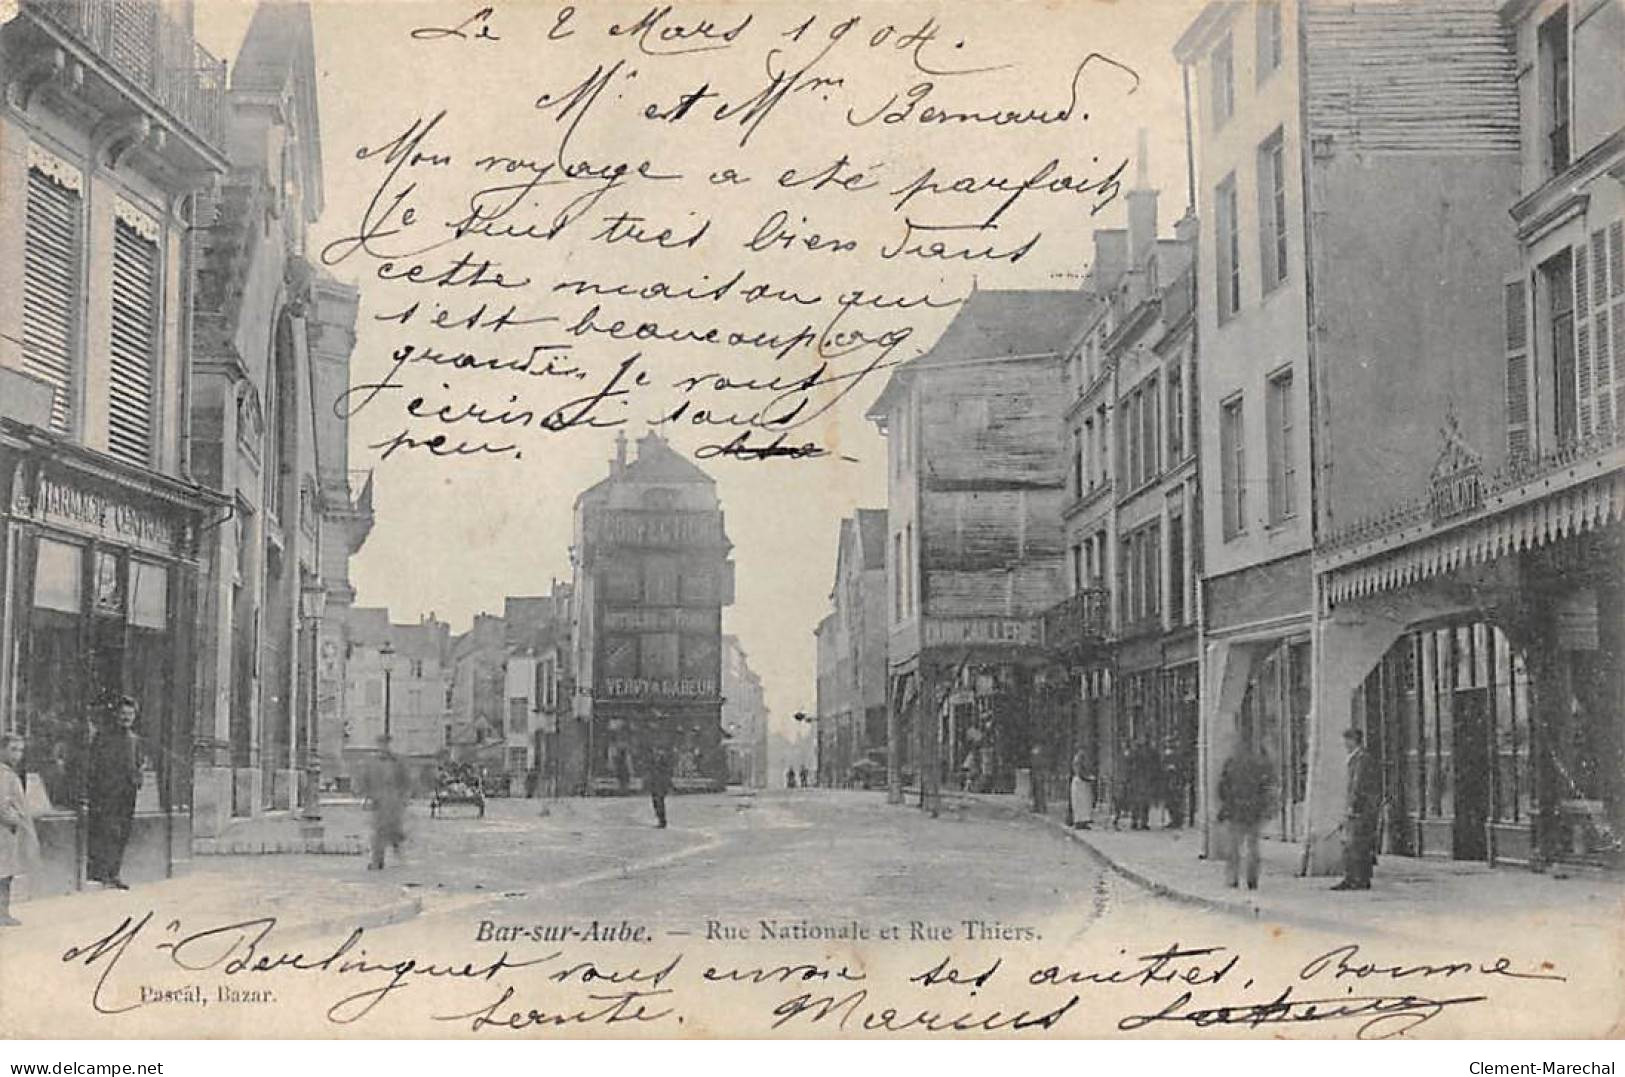 Le 2 Mars 1904.
Mr et Mme Bernard.
Mon voyage a eté parfait
Je suis très bien dans
cette maison qui
s'est beaucoup ag
grandi. Je vous
écrirai sous
peu.
PHARMACIE CENTRALE
CONFECTIONS
VERVY & BABEUR
QUINCAILLERIE
Bar-sur-Aube. — Rue Nationale et Rue Thiers.
Mr Berlinguet vous envoie ses amitiés, Bonne
Pascal, Bazar.
Santé. Marius
delcampe.net
Clement-Marechal